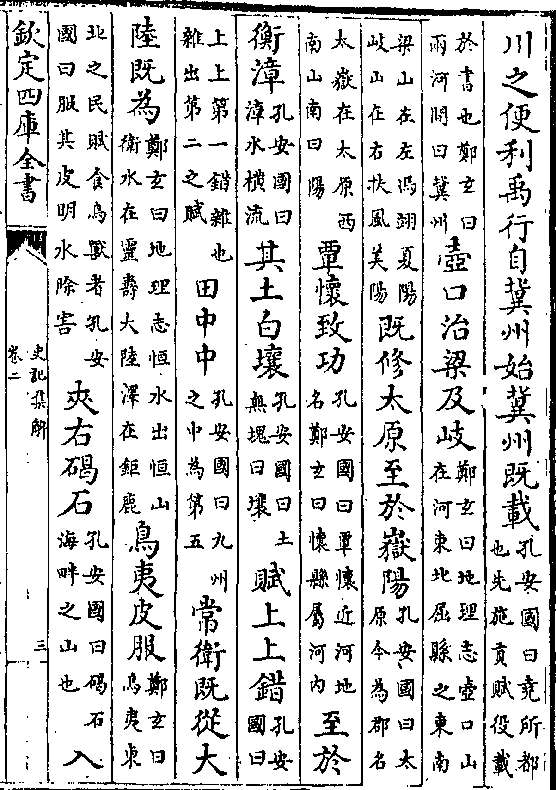 川之便利禹行自冀州始冀州既載孔安國曰堯所都也先施貢賦役載
於書也鄭玄曰兩河間曰冀州壺口治梁及岐鄭玄曰地理志壺口山在河東北屈縣之東南
梁山在左馮翊夏陽岐山在右扶風美陽既修太原至於嶽陽孔安國曰太原今為郡名
太嶽在太原西南山南曰陽覃懷致功孔安國曰覃懷近河地名鄭玄曰懷縣屬河內至於
衡漳孔安國曰漳水橫流其土白壤孔安國曰土無塊曰壤賦上上錯孔安國曰
上上第一錯雜也雜出第二之賦田中中孔安國曰九州之中為第五常衛既從大
陸既為鄭玄曰地理志恒水出恒山衛水在靈壽大陸澤在鉅鹿鳥夷皮服鄭玄曰鳥夷東
北之民賦食鳥獸者孔安國曰服其皮明水除害夾右碣石孔安國曰碣石海畔之山也入
欽定四庫全書
史記集解
卷二
三